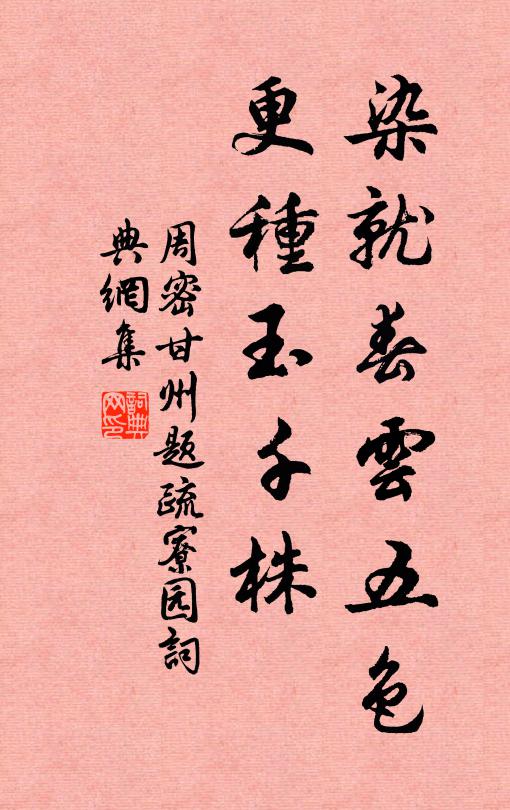 染就春雲五色
更種玉千株
周密甘州题疏寮园詞
典網集
詞典
网印